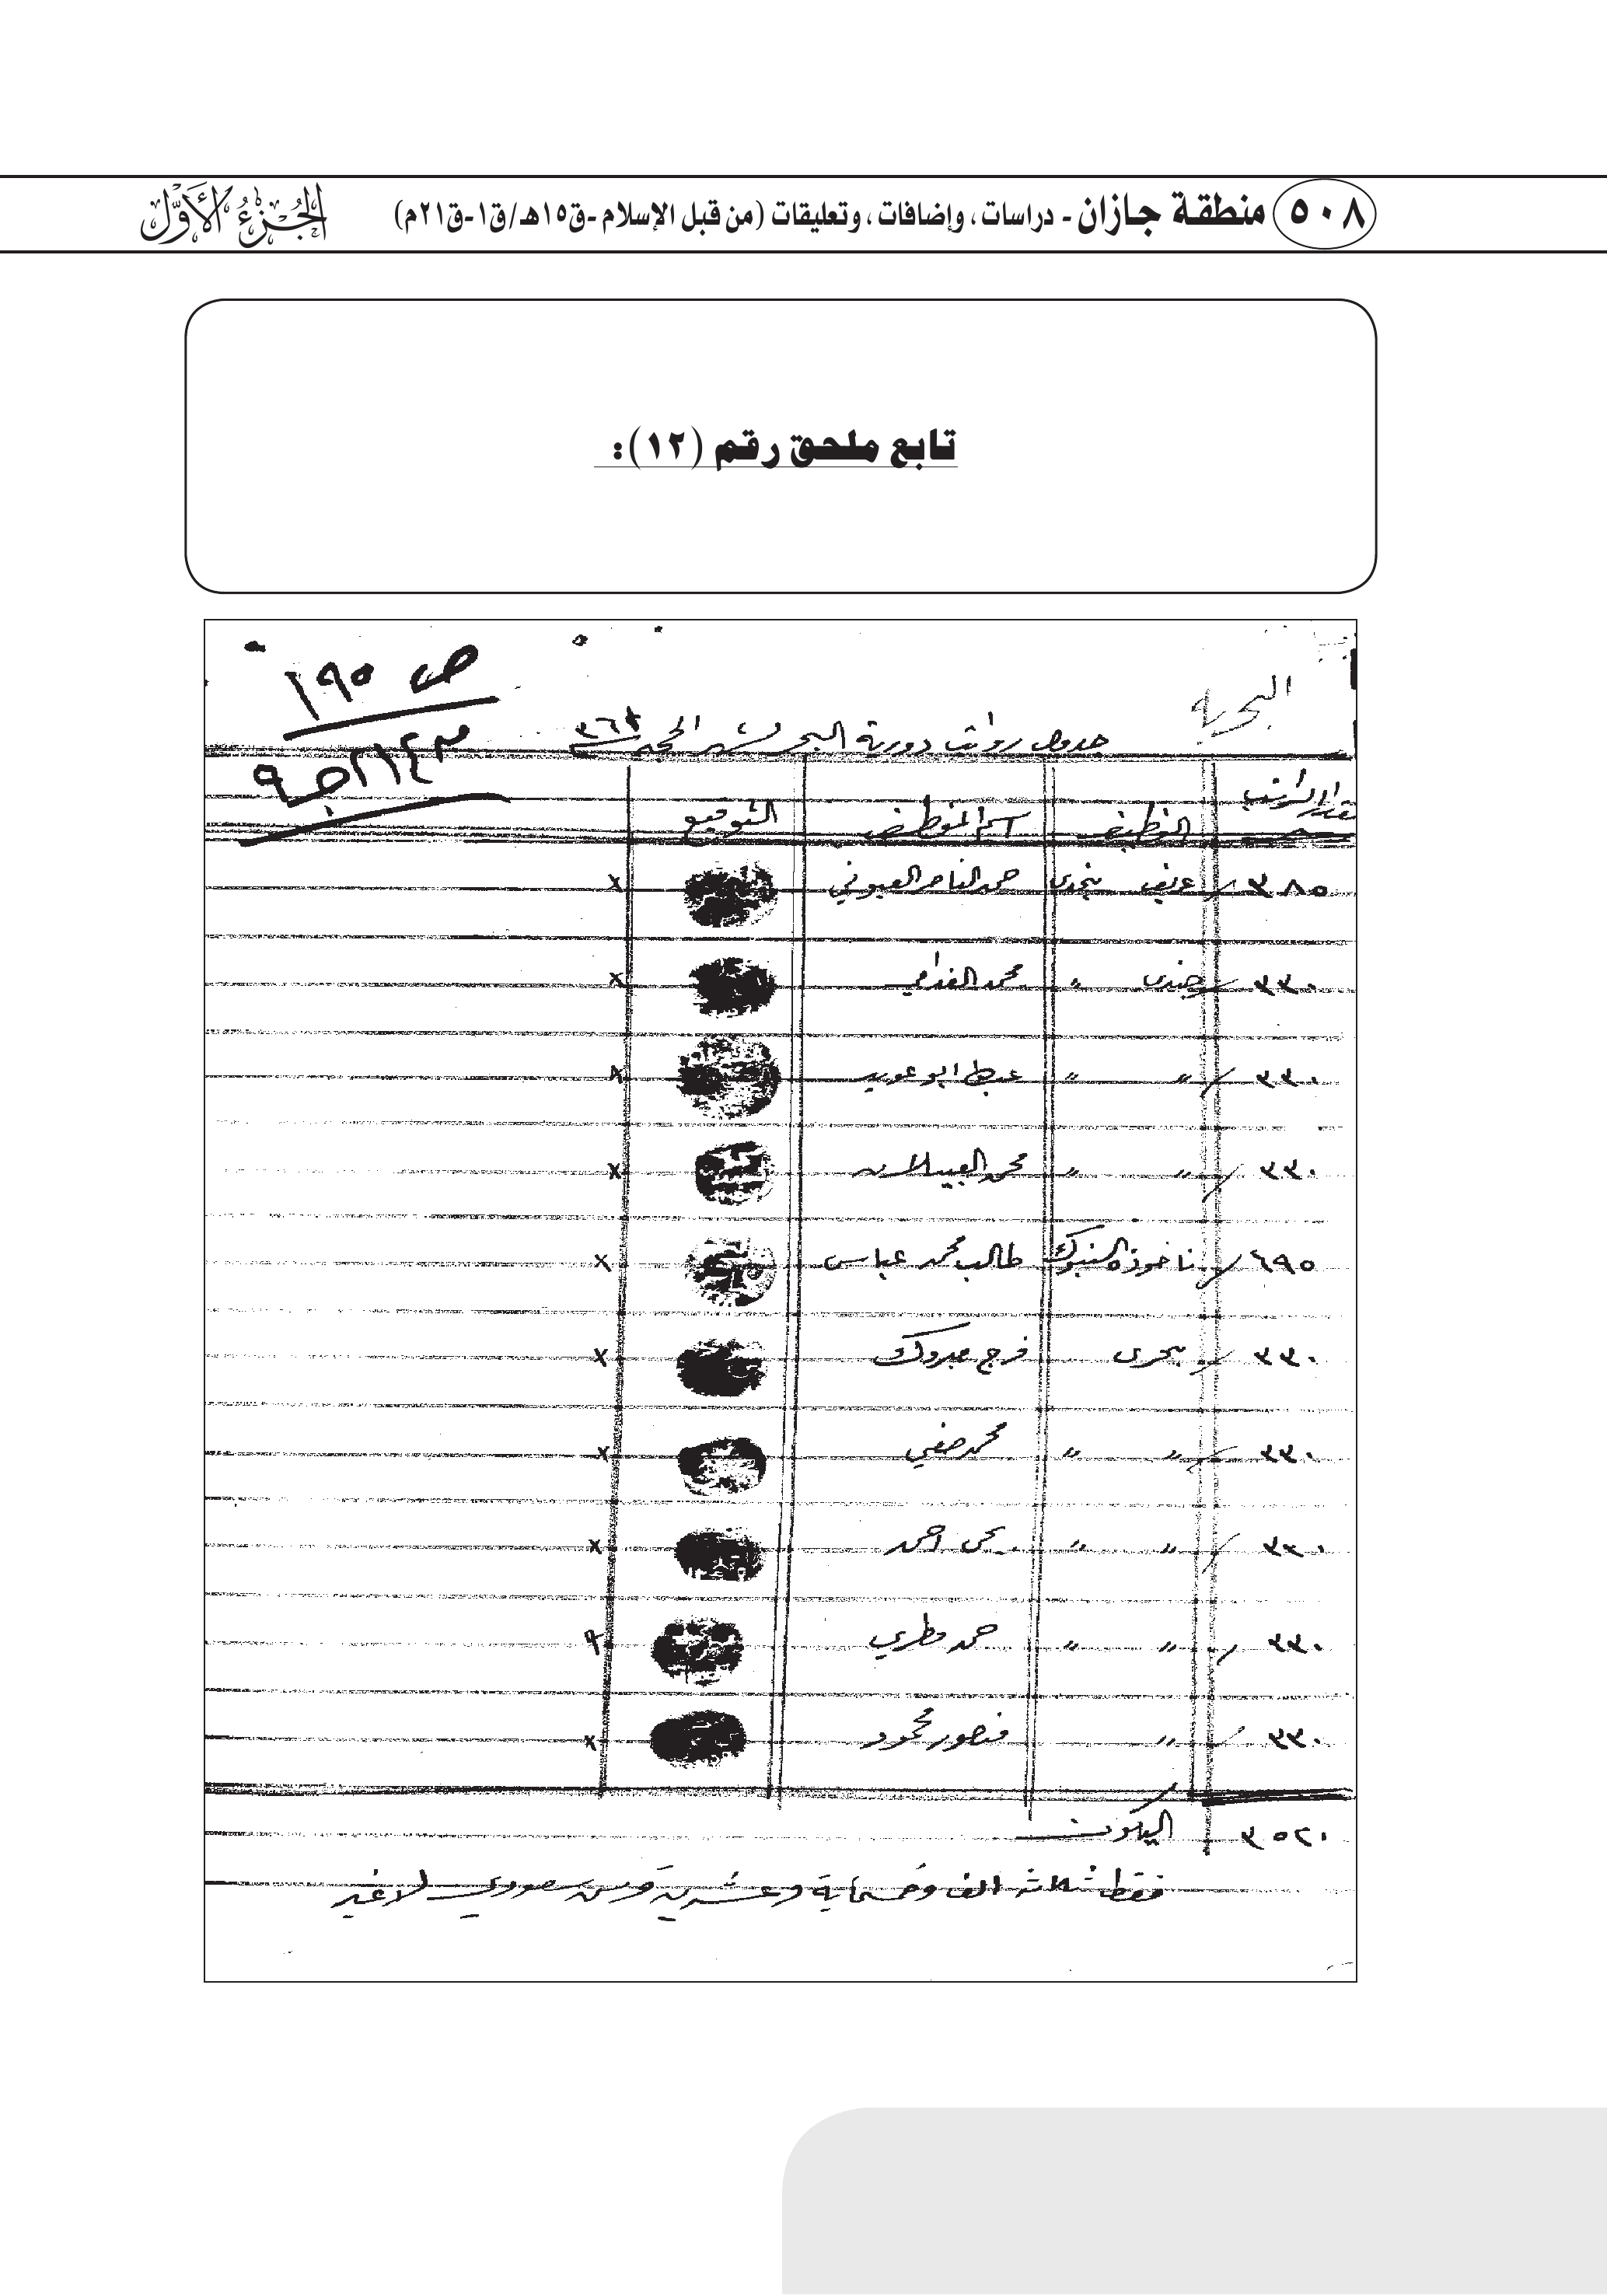 ٥٠٨ منطقة جازان - دراسات، وإضافات، وتعليقات (من قبل الإسلام -ق١٥هـ/ق١-ق٢١م) الجزء الأول
تابع ملحق رقم (١٢):
ص ١٩٥
البحرية
جدول رواتب دورية البحر لشهر الحجه
مقدار الراتب الوظيفة اسم الموظف التوقيع
٣٨٥ عريف نجدي حمد الناصر العيوني x
٣٣٠ جندي " محمد x
٣٣٠ " " ابو x
٣٣٠ " " محمد x
٦٩٥ ناخوذه السنبوك طالب محمد عباس x
٣٣٠ بحرى فرج مبروك x
٣٣٠ " " محمد x
٣٣٠ " " يحى احمد x
٣٣٠ " " حمد مطري
٣٣٠ " منصور محمود x
٣٥٢٠ اليكون
فقط ثلاثه الف وخسماية وعشرين قرش سعودي لاغير